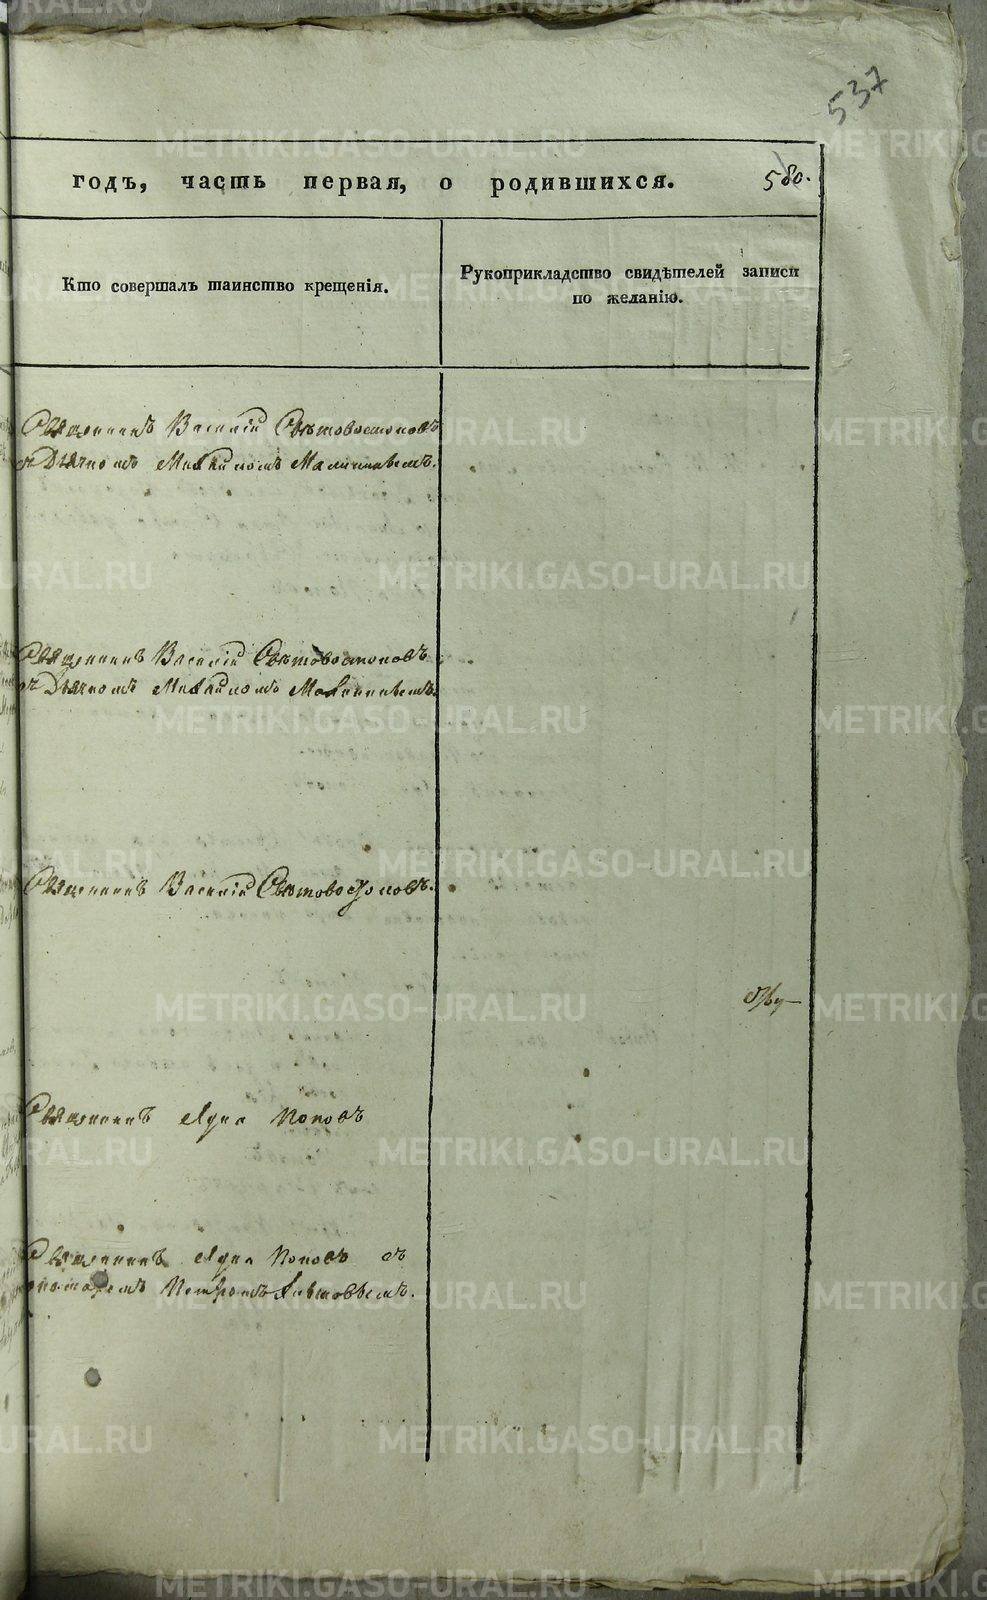 537
годъ, часть первая, о родившихся. 580.
Кто совершалъ таинство крещенія.
Рукоприкладство свидѣтелей записи
по желанію.
Священникъ Василій Свѣтовостоковъ
съ Дьячкомъ Михаиломъ
Священникъ Василій Свѣтовостоковъ
съ Дьячкомъ Михаиломъ
Священникъ Василій Свѣтовостоковъ.
Священникъ Поповъ
Священникъ Поповъ съ
пономаремъ Петромъ
METRIKI.GASO-URAL.RU